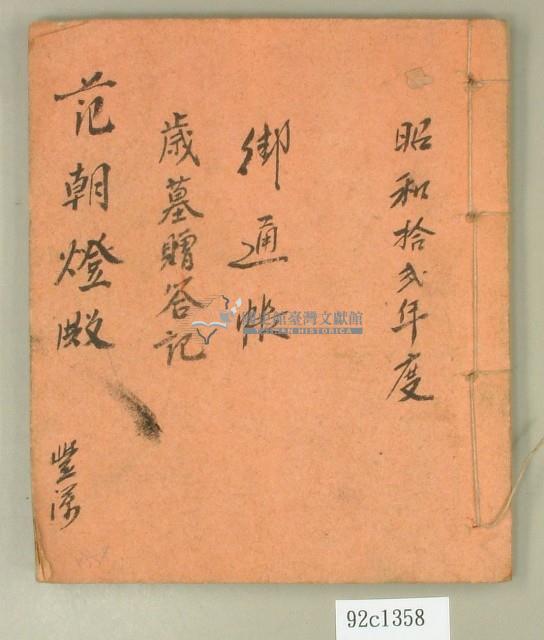 昭和拾弍年度
御通帳
歳墓贈答記
范朝燈殿
豐
國史館臺灣文獻館
TAIWAN HISTORICA
92c1358